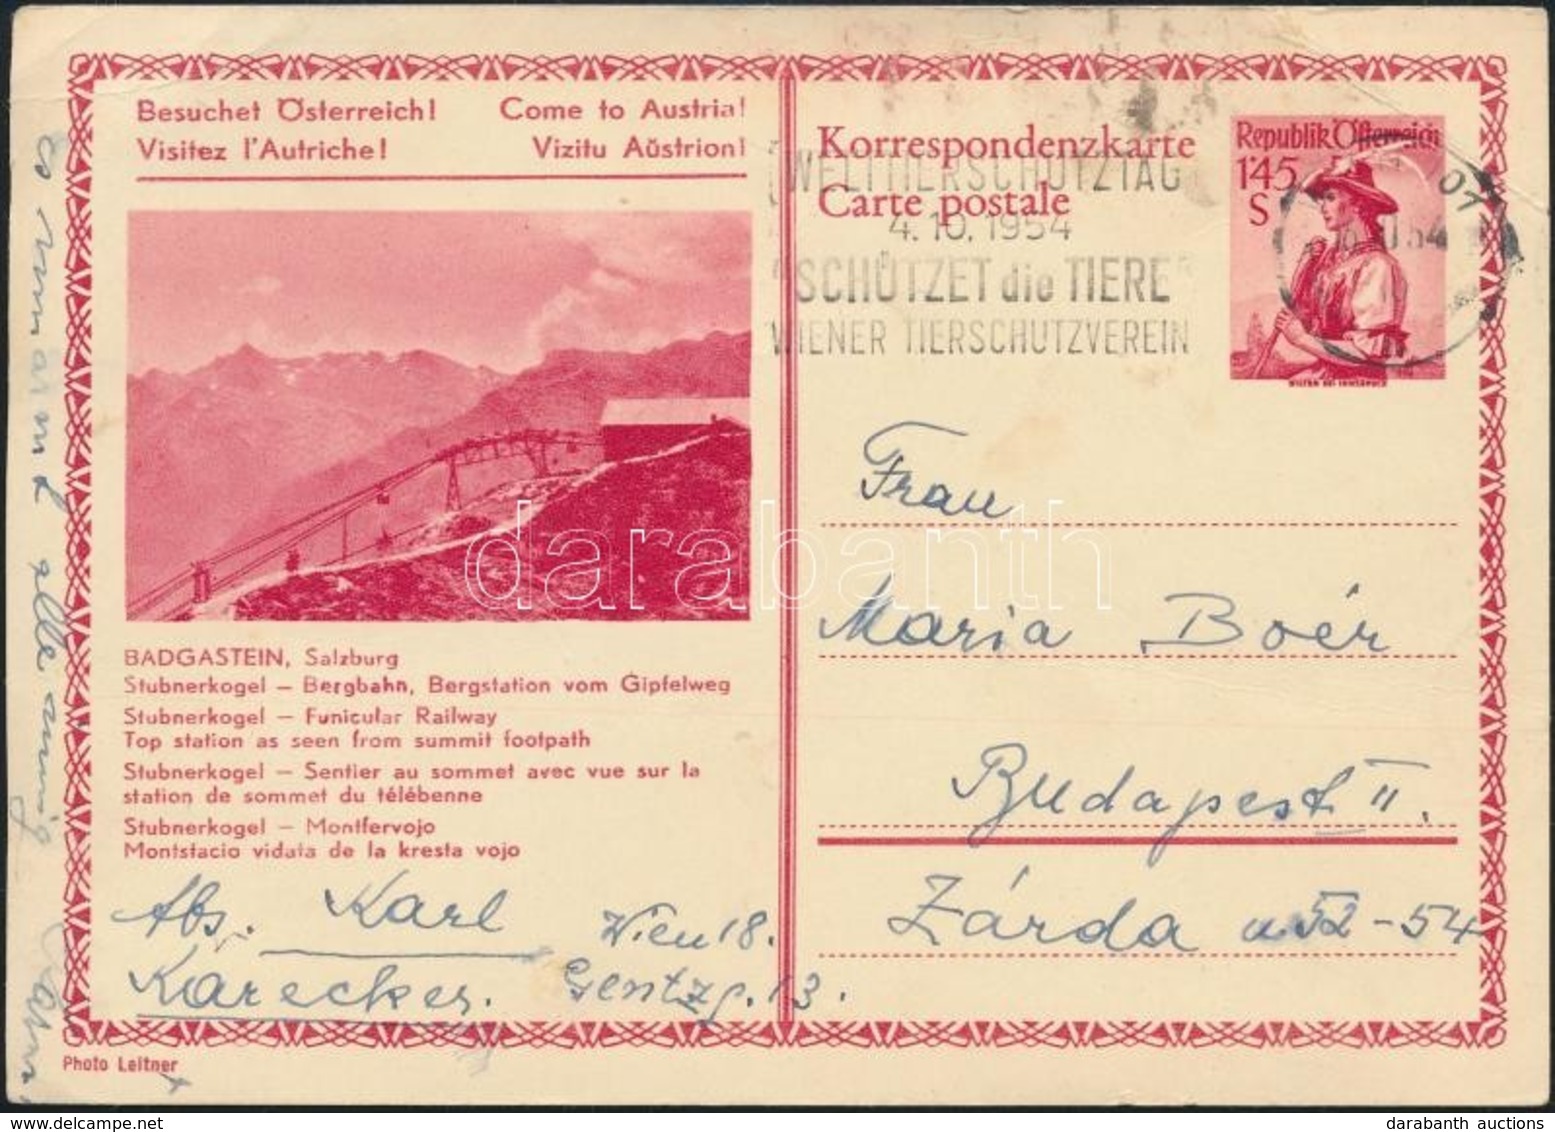 Besuchet Österreich! Come to Austria!
Visitez l'Autriche! Vizitu Aŭstrion!
BADGASTEIN, Salzburg
Stubnerkogel – Bergbahn, Bergstation vom Gipfelweg
Stubnerkogel – Funicular Railway
Top station as seen from summit footpath
Stubnerkogel – Sentier au sommet avec vue sur la
station de sommet du télébenne
Stubnerkogel – Montfervojo
Montstacio vidata de la kresta vojo
Abs. Karl
Karecker.
Wien 18.
Gentzg. 13.
Photo Leitner
Korrespondenzkarte
Carte postale
WELTTIERSCHUTZTAG
4.10.1954
SCHÜTZET die TIERE
WIENER TIERSCHUTZVEREIN
Republik Österreich
1'45
S
WILTEN BEI INNSBRUCK
Frau
Maria Boér
Budapest II.
Zárda u. 52-54
darabanth
darabanth auctions